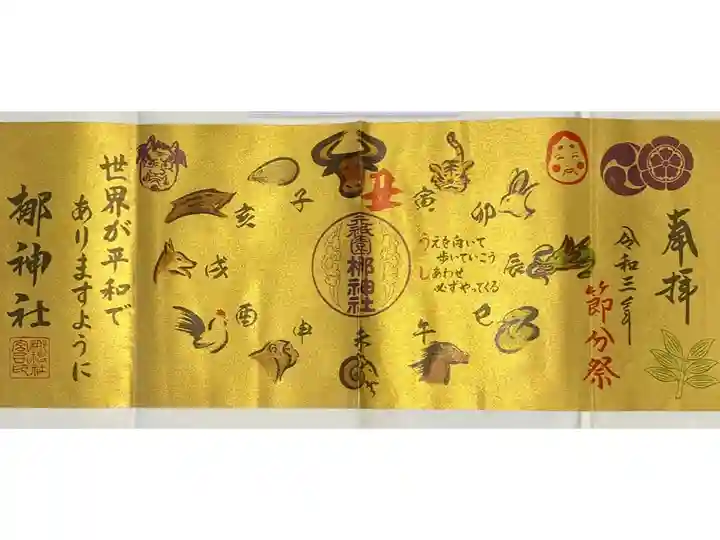 奉拝
令和三年
節分祭
子
丑
寅
卯
辰
巳
午
未
申
酉
戌
亥
元祇園梛神社
うえを向いて
歩いていこう
しあわせ
必ずやってくる
世界が平和で
ありますように
梛神社